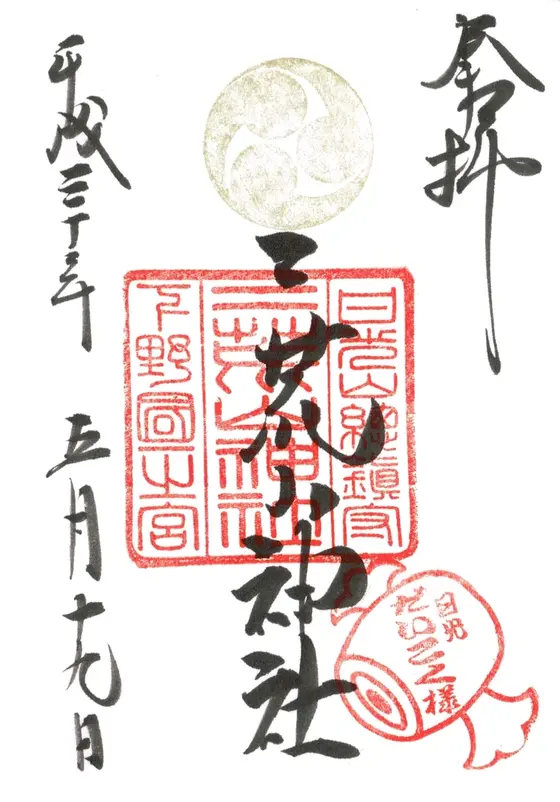 奉拝
日光山總鎮守
二荒山神社
下野國一之宮
二荒山神社
日光
だいこく様
平成 年 五月十九日